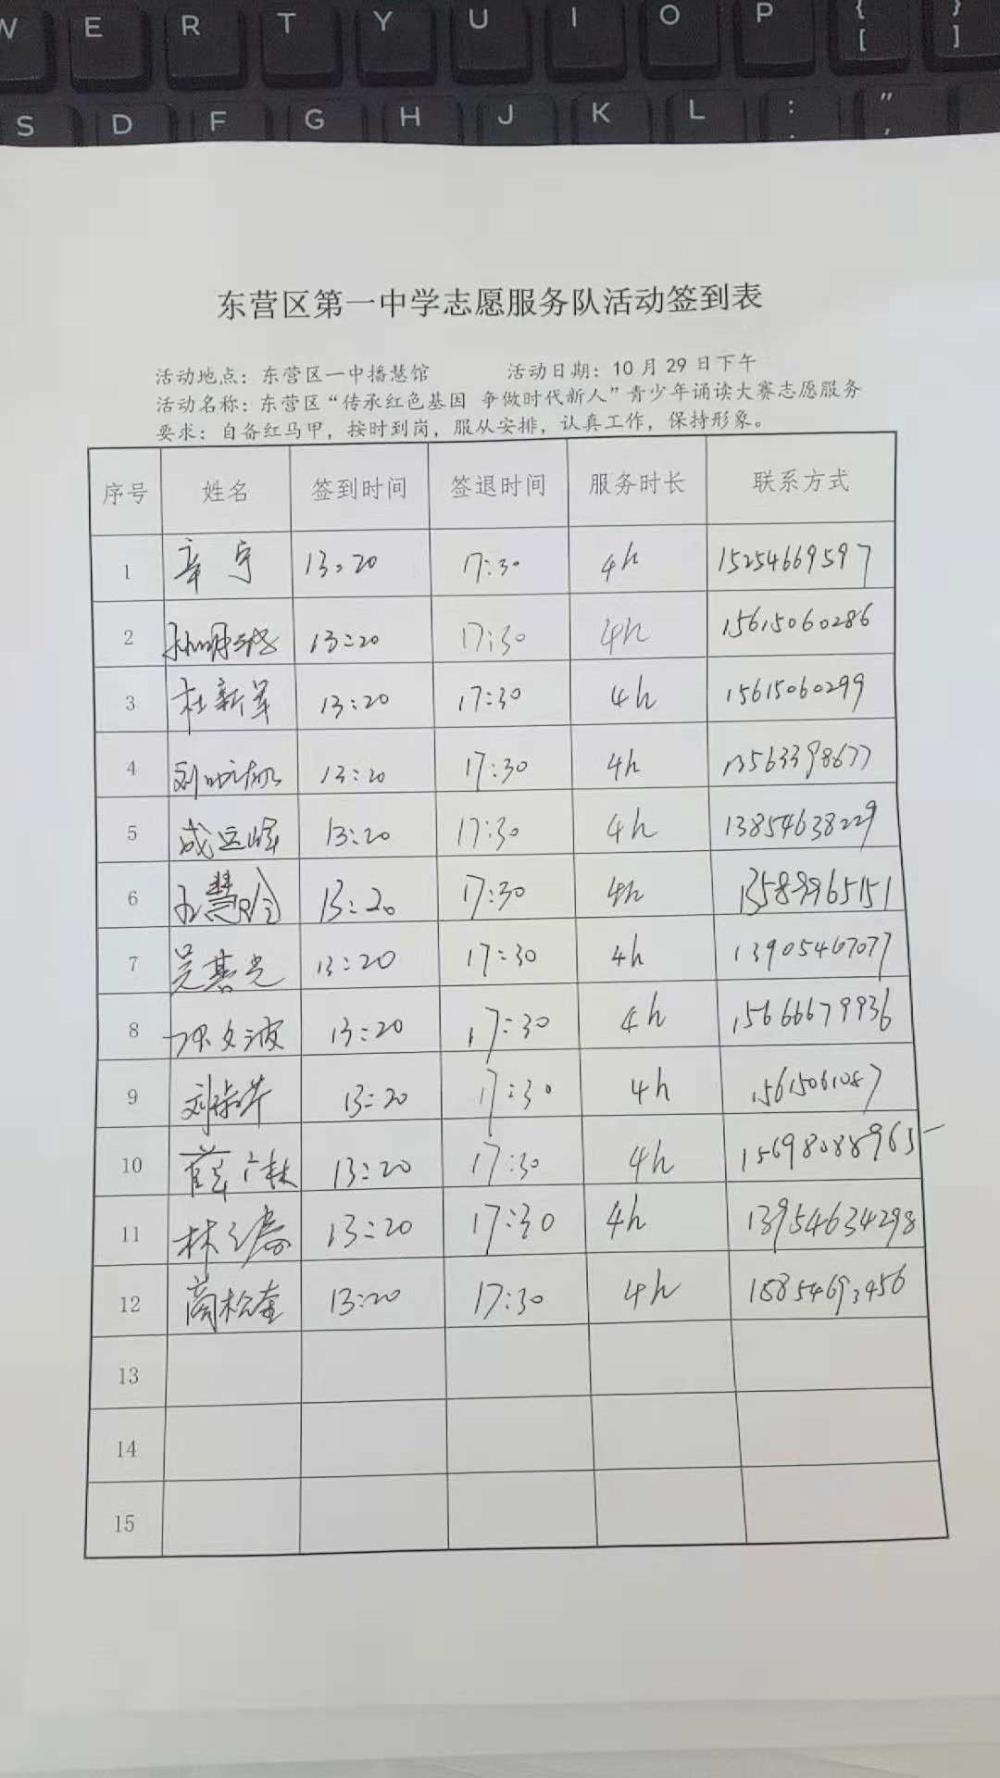 W E R T Y U I O P { [ } ]
S D F G H J K L : ; " '
东营区第一中学志愿服务队活动签到表
活动地点：东营区一中播慧馆 活动日期：10月29日下午
活动名称：东营区“传承红色基因 争做时代新人”青少年诵读大赛志愿服务
要求：自备红马甲，按时到岗，服从安排，认真工作，保持形象。
序号 姓名 签到时间 签退时间 服务时长 联系方式
1 13:20 17:30 4h 15254669597
2 13:20 17:30 4h 15615060286
3 杜新军 13:20 17:30 4h 15615060299
4 13:20 17:30 4h 13563398677
5 成运峰 13:20 17:30 4h 13854638229
6 13:20 17:30 4h 13589965151
7 吴基光 13:20 17:30 4h 13905467077
8 张文波 13:20 17:30 4h 15666679936
9 13:20 17:30 4h 15615061087
10 薛广林 13:20 17:30 4h 15698088963
11 13:20 17:30 4h 13954634298
12 商松奎 13:20 17:30 4h 18854693456
13
14
15